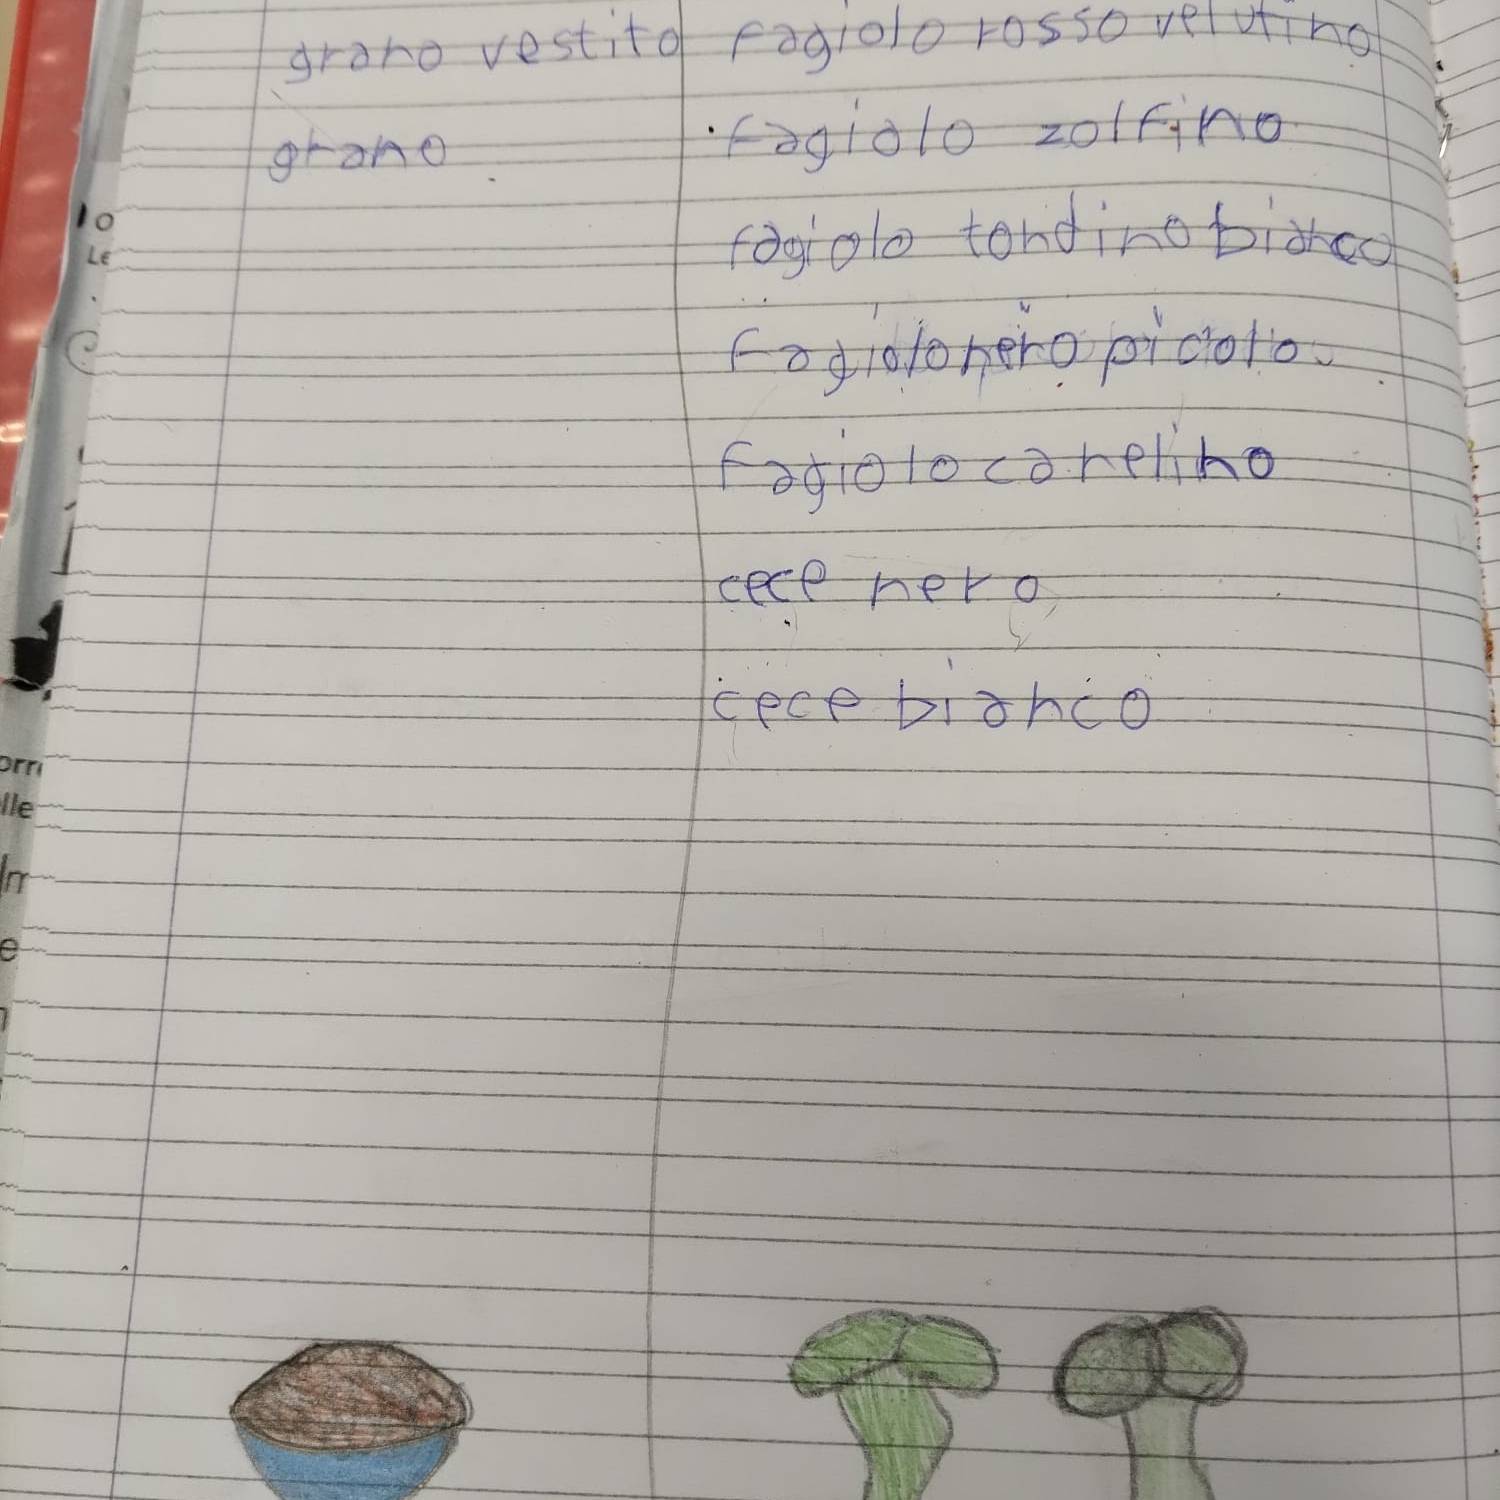 grano vestito fagiolo rosso velutino
grano fagiolo zolfino
fagiolo tondino bianco
fagiolo nero picolo
fagiolo canelino
cece nero
cece bianco
lo
LE
e
orri
lle
e